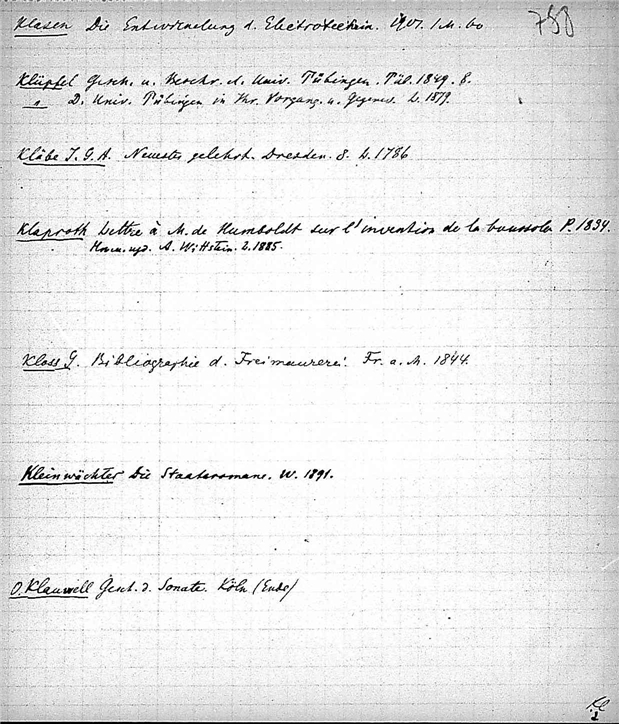 Klasen Die Entwickelung d. Electrotechnin. 1901. 1 M. 60
750
Klüpfel Gesch. u. Beschr. d. Univ. Tübingen. Tüb. 1849. 8.
" D. Univ. Tübingen in Ihr. Vorgang. u. Gegenw. L. 1877.
Kläbe J. G. A. Neuestes gelehrt. Dresden. 8. L. 1786
Klaproth Lettre à M. de Humboldt sur l'invention de la boussole P. 1834.
A. Wittstein. L. 1885.
Kloss G. Bibliographie d. Freimaurerei. Fr. a. M. 1844.
Kleinwächter Die Staatsromane. W. 1891.
O. Klauwell Gesch. d. Sonate. Köln (Ende)
Kl
1